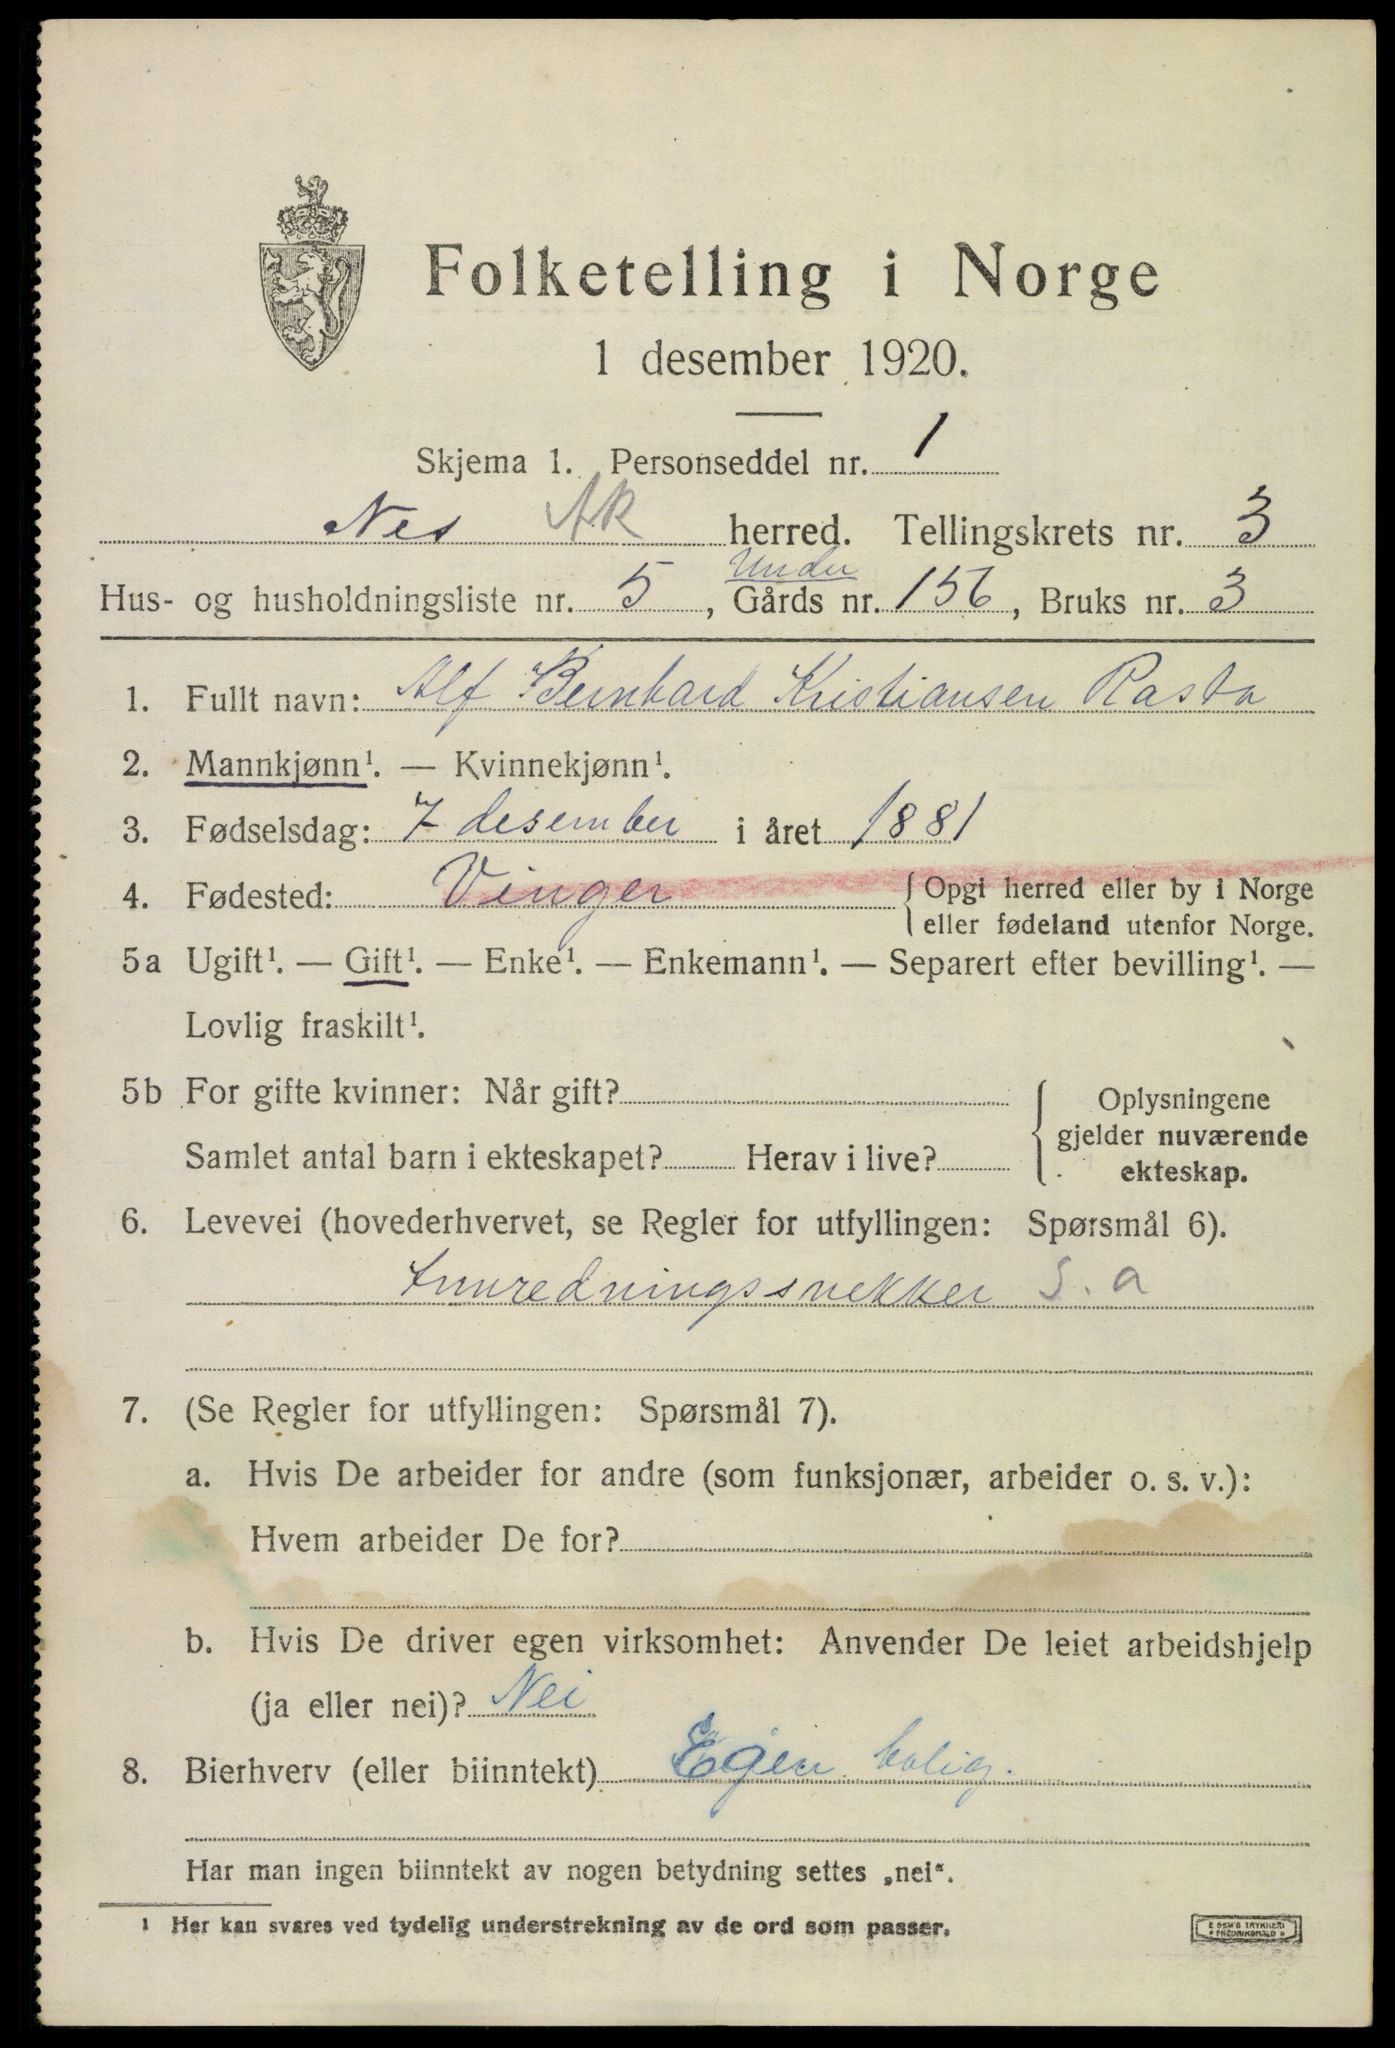 Folketelling i Norge
1 desember 1920.
Skjema 1. Personseddel nr. 1
Nes Ak herred. Tellingskrets nr. 3
Under
Hus- og husholdningsliste nr. 5, Gårds nr. 156, Bruks nr. 3
1. Fullt navn: Alf Bernhard Kristiansen Rasta
2. Mannkjønn¹. — Kvinnekjønn¹.
3. Fødselsdag: 7 desember i året 1881
4. Fødested: Vinger { Opgi herred eller by i Norge
eller fødeland utenfor Norge.
5a Ugift¹. — Gift¹. — Enke¹. — Enkemann¹. — Separert efter bevilling¹. —
Lovlig fraskilt¹.
5b For gifte kvinner: Når gift? { Oplysningene
gjelder nuværende
Samlet antal barn i ekteskapet? Herav i live?
ekteskap.
6. Levevei (hovederhvervet, se Regler for utfyllingen: Spørsmål 6).
Innredningssnekker S. a
7. (Se Regler for utfyllingen: Spørsmål 7).
a. Hvis De arbeider for andre (som funksjonær, arbeider o. s. v.):
Hvem arbeider De for?
b. Hvis De driver egen virksomhet: Anvender De leiet arbeidshjelp
(ja eller nei)? Nei
8. Bierhverv (eller biinntekt) Egen bolig.
Har man ingen biinntekt av nogen betydning settes „nei“.
1 Her kan svares ved tydelig understrekning av de ord som passer.
E SEM'S TRYKKERI
FREDRIKSHALD